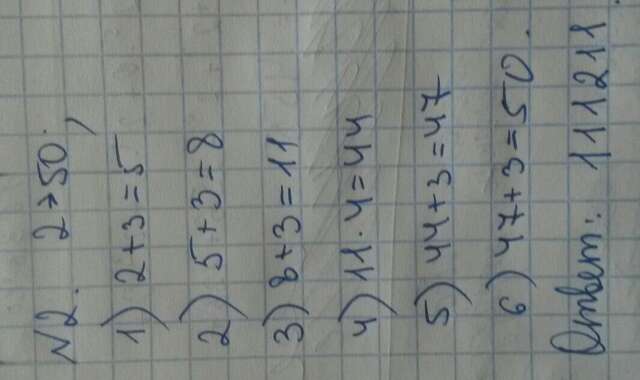 N2. 2→50;
1) 2+3=5
2) 5+3=8
3) 8+3=11
4) 11·4=44
5) 44+3=47
6) 47+3=50.
Ответ: 111211